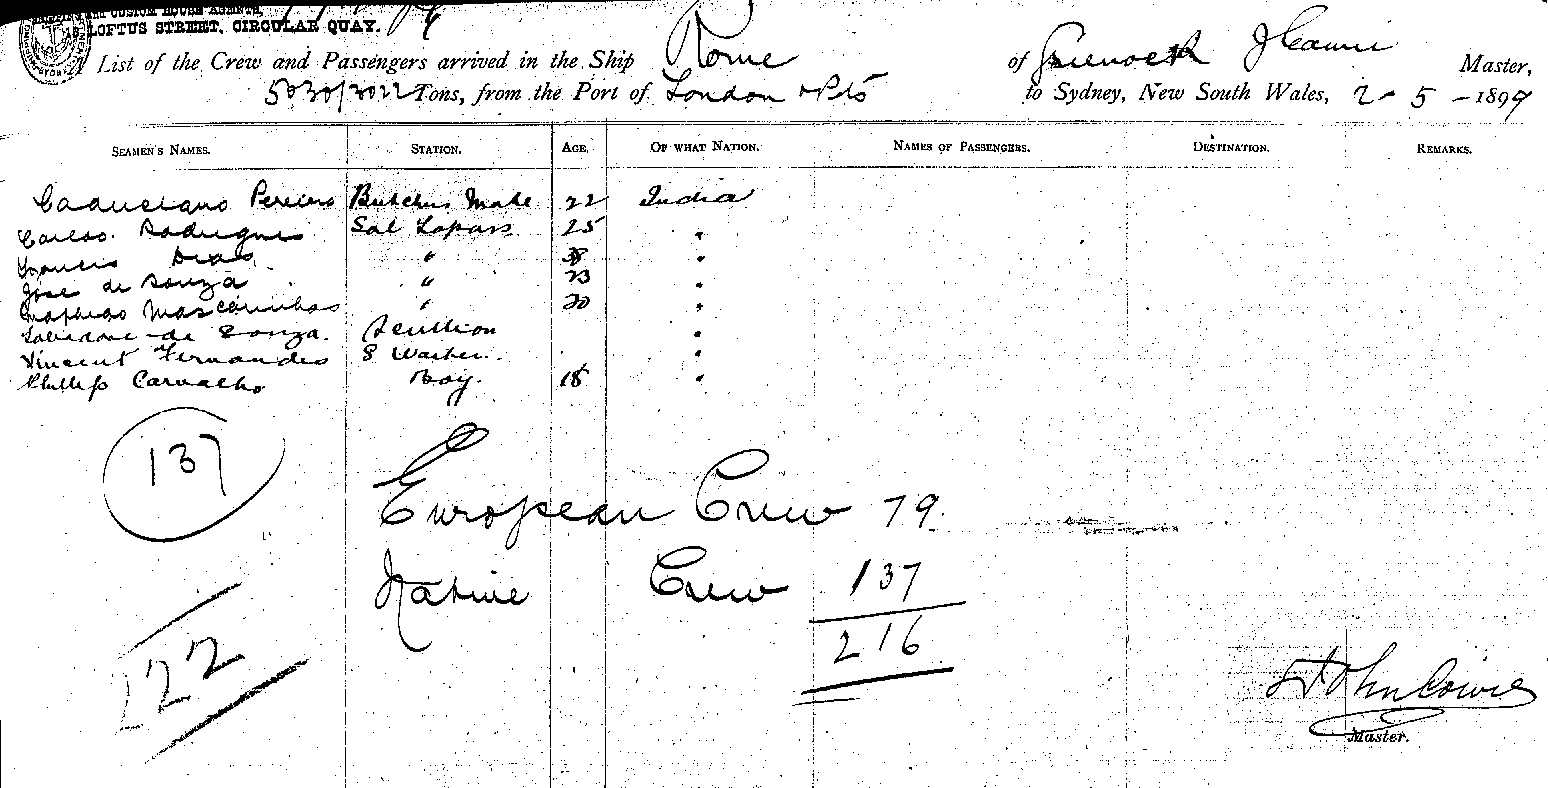 SHIPPING AND CUSTOM HOUSE AGENTS,
LOFTUS STREET, CIRCULAR QUAY.
A List of the Crew and Passengers arrived in the Ship Rome of Greenock J Cowie Master,
5030/3022 Tons, from the Port of London & Pts to Sydney, New South Wales, 2 - 5 - 1899
SEAMEN'S NAMES. STATION. AGE. OF WHAT NATION. NAMES OF PASSENGERS. DESTINATION. REMARKS.
Pereira Butchers Mate 22 India
Carlos Rodrigues 25 "
Francis Dias " 38 "
Jose de Souza " 23 "
Mascarinhas " 20 "
Salvadore de Souza. Scullion "
Vincent Fernandes Washer. "
Phillip Carvalho Boy. 18 "
137
European Crew 79.
Native Crew 137
216
122
John Cowie
Master.